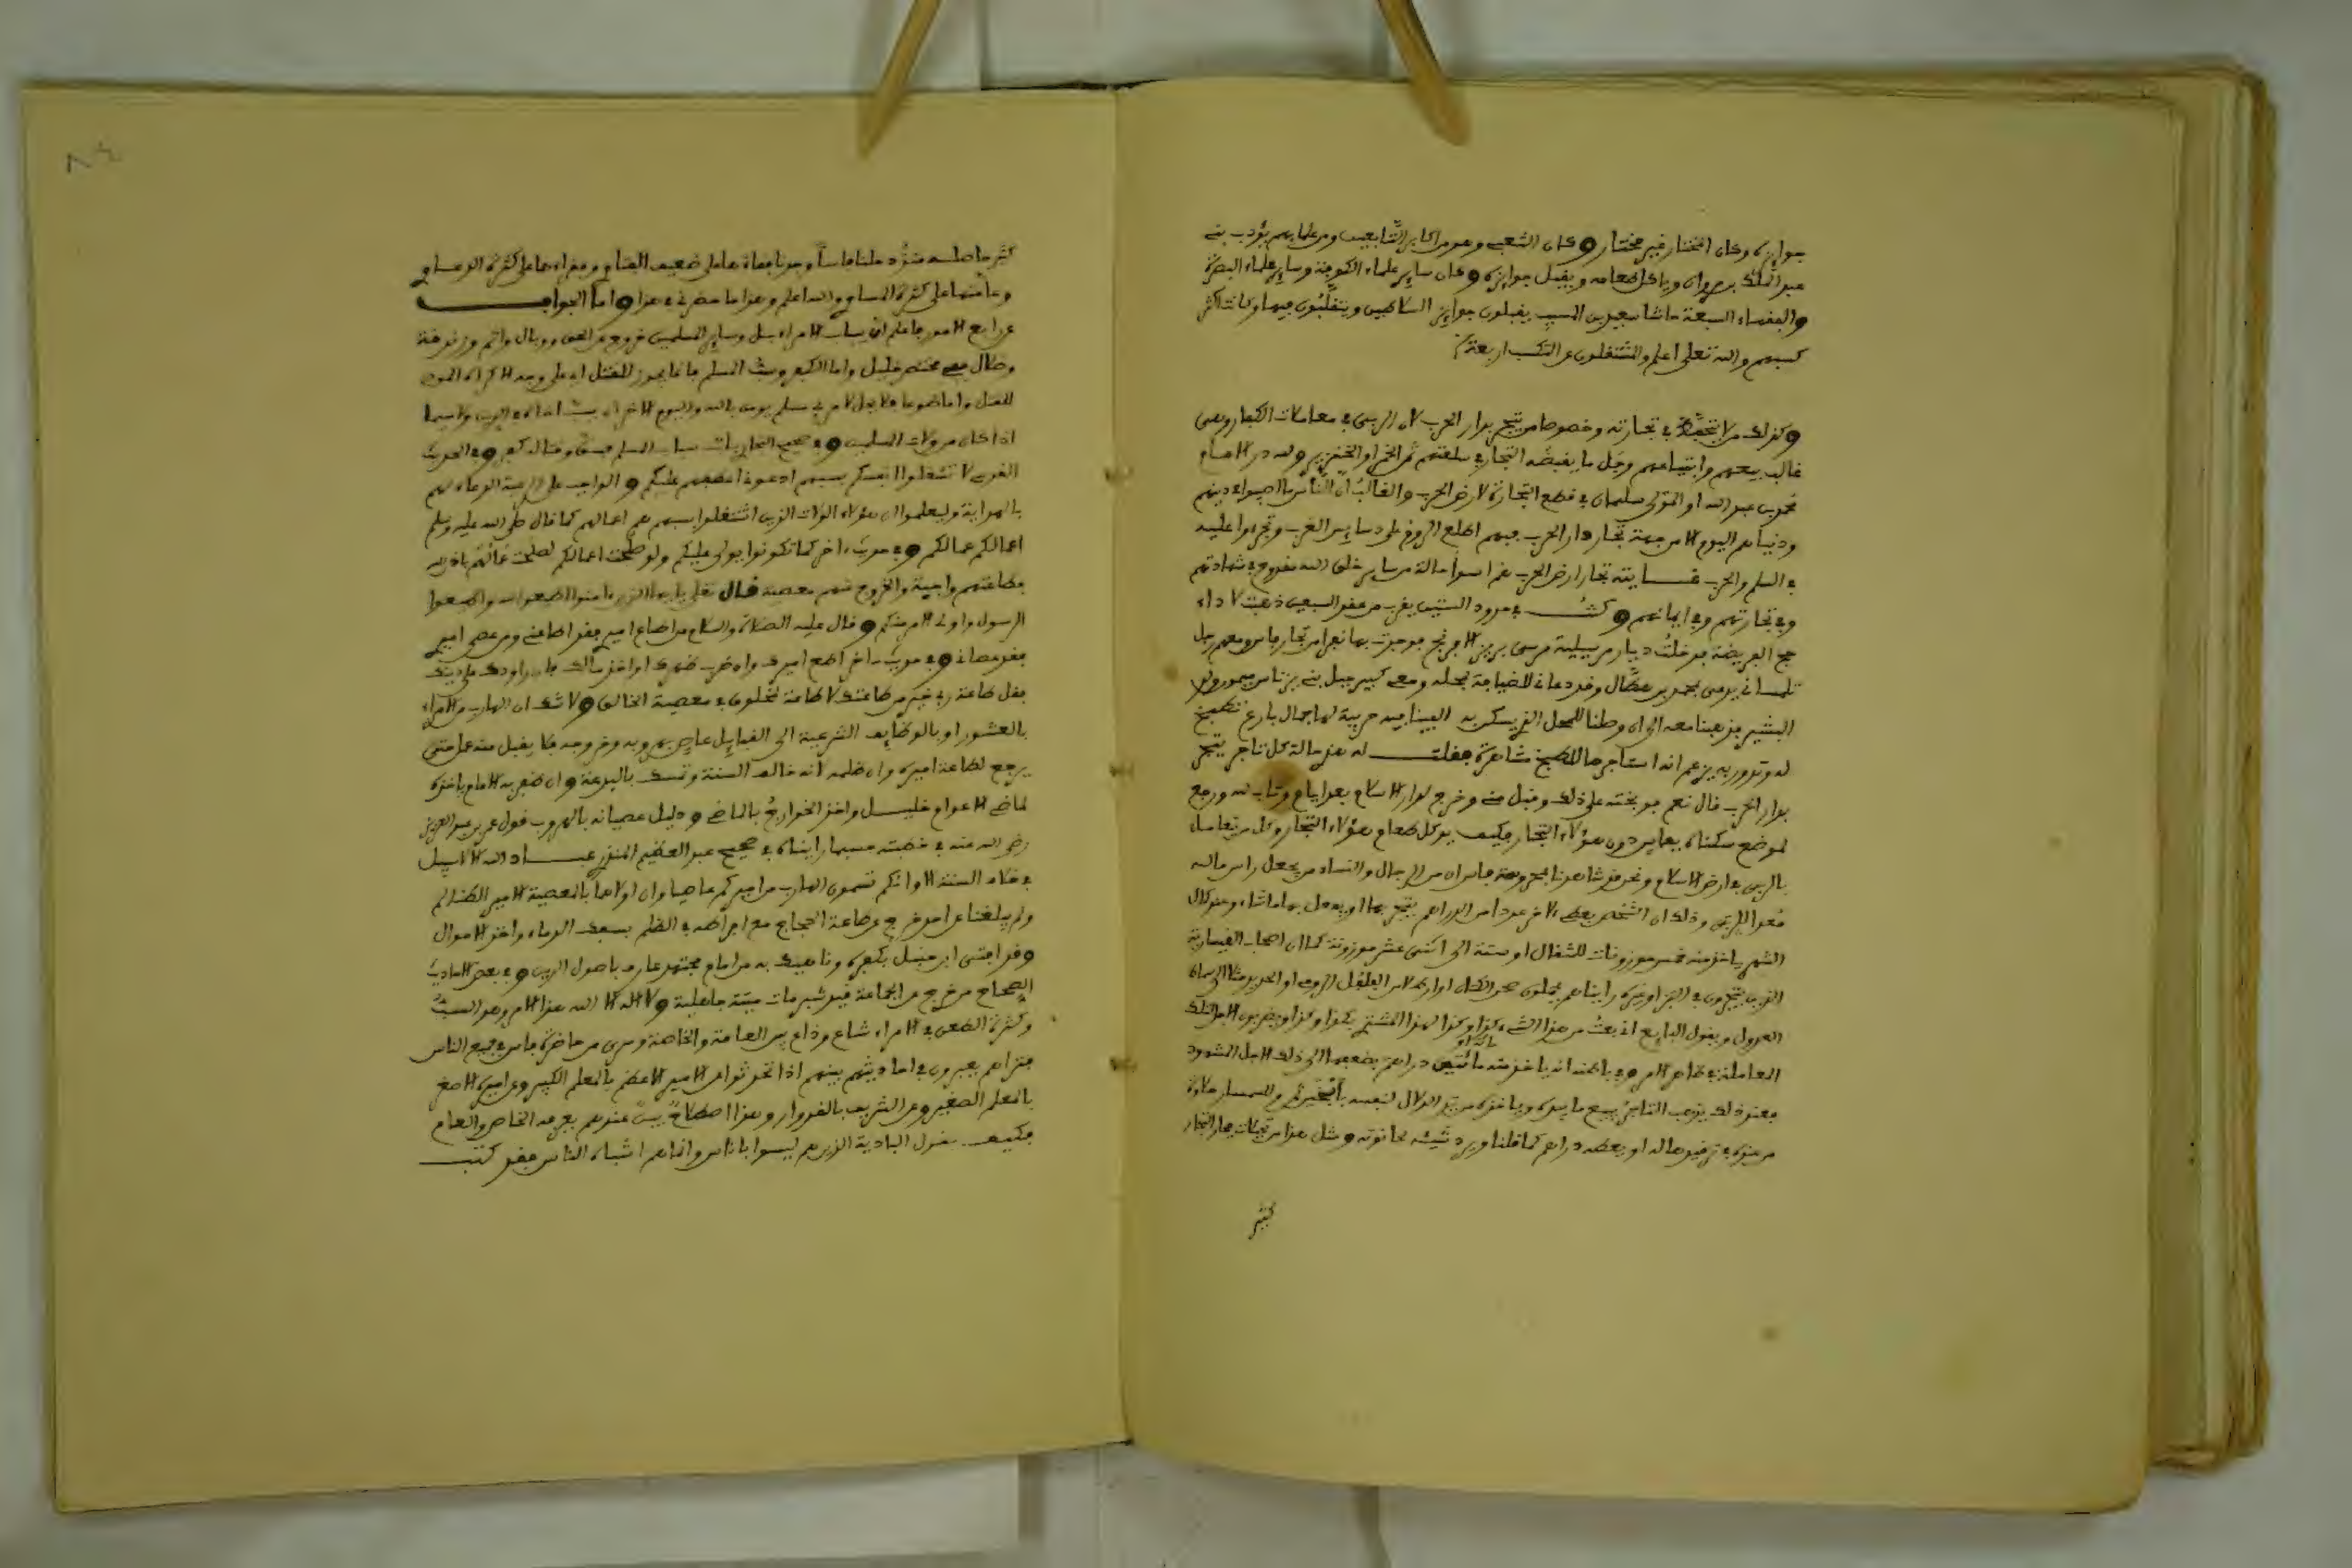 جوايزه وكان المختار غير مختار وكان الشعبي وهو من اكابر التابعين ومن علمايهم يؤدب بني
عبد الملك بن مروان وياكل طعامه ويقبل جوايزه وكان ساير علماء الكوفة وساير علماء البصرة
والفقهاء السبعة حاشا سعيد بن المسيب يقبلون جوايز السلاطين ويتقلبون فيها وكانت اكثر
كسبهم والله تعلى اعلم والمشتغلون عن التكسب اربعة
وكذلك من لا يتحفظ في تجارته وخصوصا من يتجر بدار الحرب لان الربى في معاملات الكفار وبعض
غالب بيعهم وابتياعهم وجل ما يقبضه التجار في سلعتهم ثمن الخمر او الخنزير ولله در الامام
محمد بن عبد الله او المولى سليمان في قطع التجارة لارض الحرب والغالب ان الناس ما اصيبوا في دينهم
ودنياهم اليوم الا من جهة تجار دار الحرب فبهم اطلع الروم على دسايس الغرب وتجرءوا عليه
في السلم والحرب تجار ارض الحرب هم اسوأ حالة من ساير خلق الله في شهادتهم
وفي تجارتهم وفي ايمانهم وكنت في حدود الستين يقرب من عقد السبعين ذهبت لاداء
حج الفريضة فدخلت ديار مرسيلية مرسى بر الافرنج فوجدت بها نفرا من تجار فاس ومعهم رجل
تلمساني يدعى بمحمد بن عطال وقد دعاني للضيافة بمحله ومعي كبير جبل بني يزناس ميمون ولد
البشير فذهبنا معه الى ان وصلنا للمحل الذي يسكن به الفينا فيه حربية لها جمال بارع تطبخ
له وتدور به يزعم انه استاجرها للطبخ مشاهرة فقلت له هذه حالة كل تاجر يتجر
بدار الحرب قال نعم فوبخته على ذلك وقبل مني وخرج لدار الاسلام بعد ايام وتاب لله ورجع
لموضع سكناه بفاس دون هؤلاء التجار فكيف يوكل طعام هؤلاء التجار وكل من يتعامل
بالربى في ارض الاسلام ونحن قد شاهدنا بمحروسة فاس ان من الرجال والنساء من يجعل راس ماله
معدا للربى وذلك ان الشخص يعطي لاخر عددا من الدراهم يتجر بها او يفعل بها ما شاء وعند كمال
الشهر ياخذ منه خمس موزونات للمثقال او ستة الى اثنتى عشر موزونة كما ان اصحاب القيسارية
الذين يتجرون في البز وغيره رايناهم يجعلون
العدول ويقول البايع اذ بعت من هذا الشيء كذا وكذا لهذا المشتري بكذا وكذا ويضربون الاجل لتلك
المعاملة في ظاهر الامر وفي باطنه انه ياخذ منه مائة او مائتين دراهم يدفعها الى ذلك الاجل المشهود
فعند ذلك يذهب التاجر يبيع ما بيده وياخذه من يد الدلال لنفسه بأبخس ثمن وللسمسار حلاوة
من عنده في ترقيد ماله او يعطه دراهم كما قلنا ويرد شيئه لحانوته ومثل هذا من تحيلات هؤلاء التجار
كثير
كثير ما صلـه
وعامتها على كثرة المساوي والله اعلم وهذا ما حضرني في هذا واما الجواب
عن رابع الامور فاعلم ان سباب الامراء بل وساير المسلمين خروج عن الحق ووبال واثم وزندقة
وضلال واما الكفر وسب المسلم
للقتل واما طوعا فلا يحل لامرئ مسلم يومن بالله واليوم الاخر ان يسب اخاه في الدين ولا سيما
اذا كان من ولات المسلمين وفي صحيح البخاري سباب المسلم فسق وقتاله كفر وفي الحديث
القدسي لا تشغلوا انفسكم بسبهم ادعوني اعطفهم عليكم والواجب على الرعية الدعاء لهم
بالهداية وليعلموا ان هؤلاء الولات الذين اشتغلوا بسبهم هم اعمالهم كما قال صلى الله عليه وسلم
اعمالكم عمالكم وفي حديث اخر كما تكونوا يولى عليكم ولو صلحت اعمالكم لصلحت عمالكم باذن الله
فطاعتهم واجبة والخروج عنهم معصية قال تعلى يا ايها الذين ءامنوا اطيعوا الله واطيعوا
الرسول واولي الامر منكم وقال عليه الصلاة والسلام من اطاع اميري فقد اطاعني ومن عصى اميري
فقد عصاني وفي حديث ءاخر اطع اميرك وان ضرب ظهرك او اخذ مالك فان راودك على دينك
فقل طاعة ربي خير من طاعتك لا طاعة لمخلوق في معصية الخالق ولا شك ان الهارب من الامراء
بالعشور او بالوظايف الشرعية الى القبايل عاص بهروبه وخروجه فلا يقبل منه عمل حتى
يرجع لطاعة اميره وان ظلمه لانه خالف السنة وتمسك بالبدعة وان ظفر به الامام ياخذه
لماضي الاعوام خليل واخذ الخوارج بالماضي ودليل عصيانه بالهروب قول عمر بن عبد العزيز
رضي الله عنه في خطبته حسبما رايناه في صحيح عبد العظيم المنذري عبـــاد الله الا سبيل
في خلاف السنة الا وانكم تسمون الهارب من اميركم عاصيا وان اولاهما بالمعصية الامير الظالم
ولم يبلغنا عن احد خرج عن طاعة الحجاج مع افراطه في الظلم بسفك الدماء واخذ الاموال
وقد افتى ابن حنبل بكفره وناهيك به من امام مجتهد عارف باصول الدين وفي بعض الاحاديث
الصحاح من خرج عن الجماعة قيد شبر مات ميتة جاهلية ولا اله الا الله هذا الامر وهو السب
وكثرة الطعن في الامراء شاع وذاع بين العامة والخاصة وسرى من حاضرة فاس في جميع الناس
فتراهم يعبرون في احاديثهم بينهم اذا تحدثوا عن الامير الاعظم بالمعلم الكبير وعن اميره الاصغر
بالمعلم الصغير وعن الشريف بالقروار وهذا اصطلاح بين عندهم يعرفه الخاص والعام
فكيف بقول البادية الذين هم ليسوا باناس وانما هم اشباه الناس فقد كتب